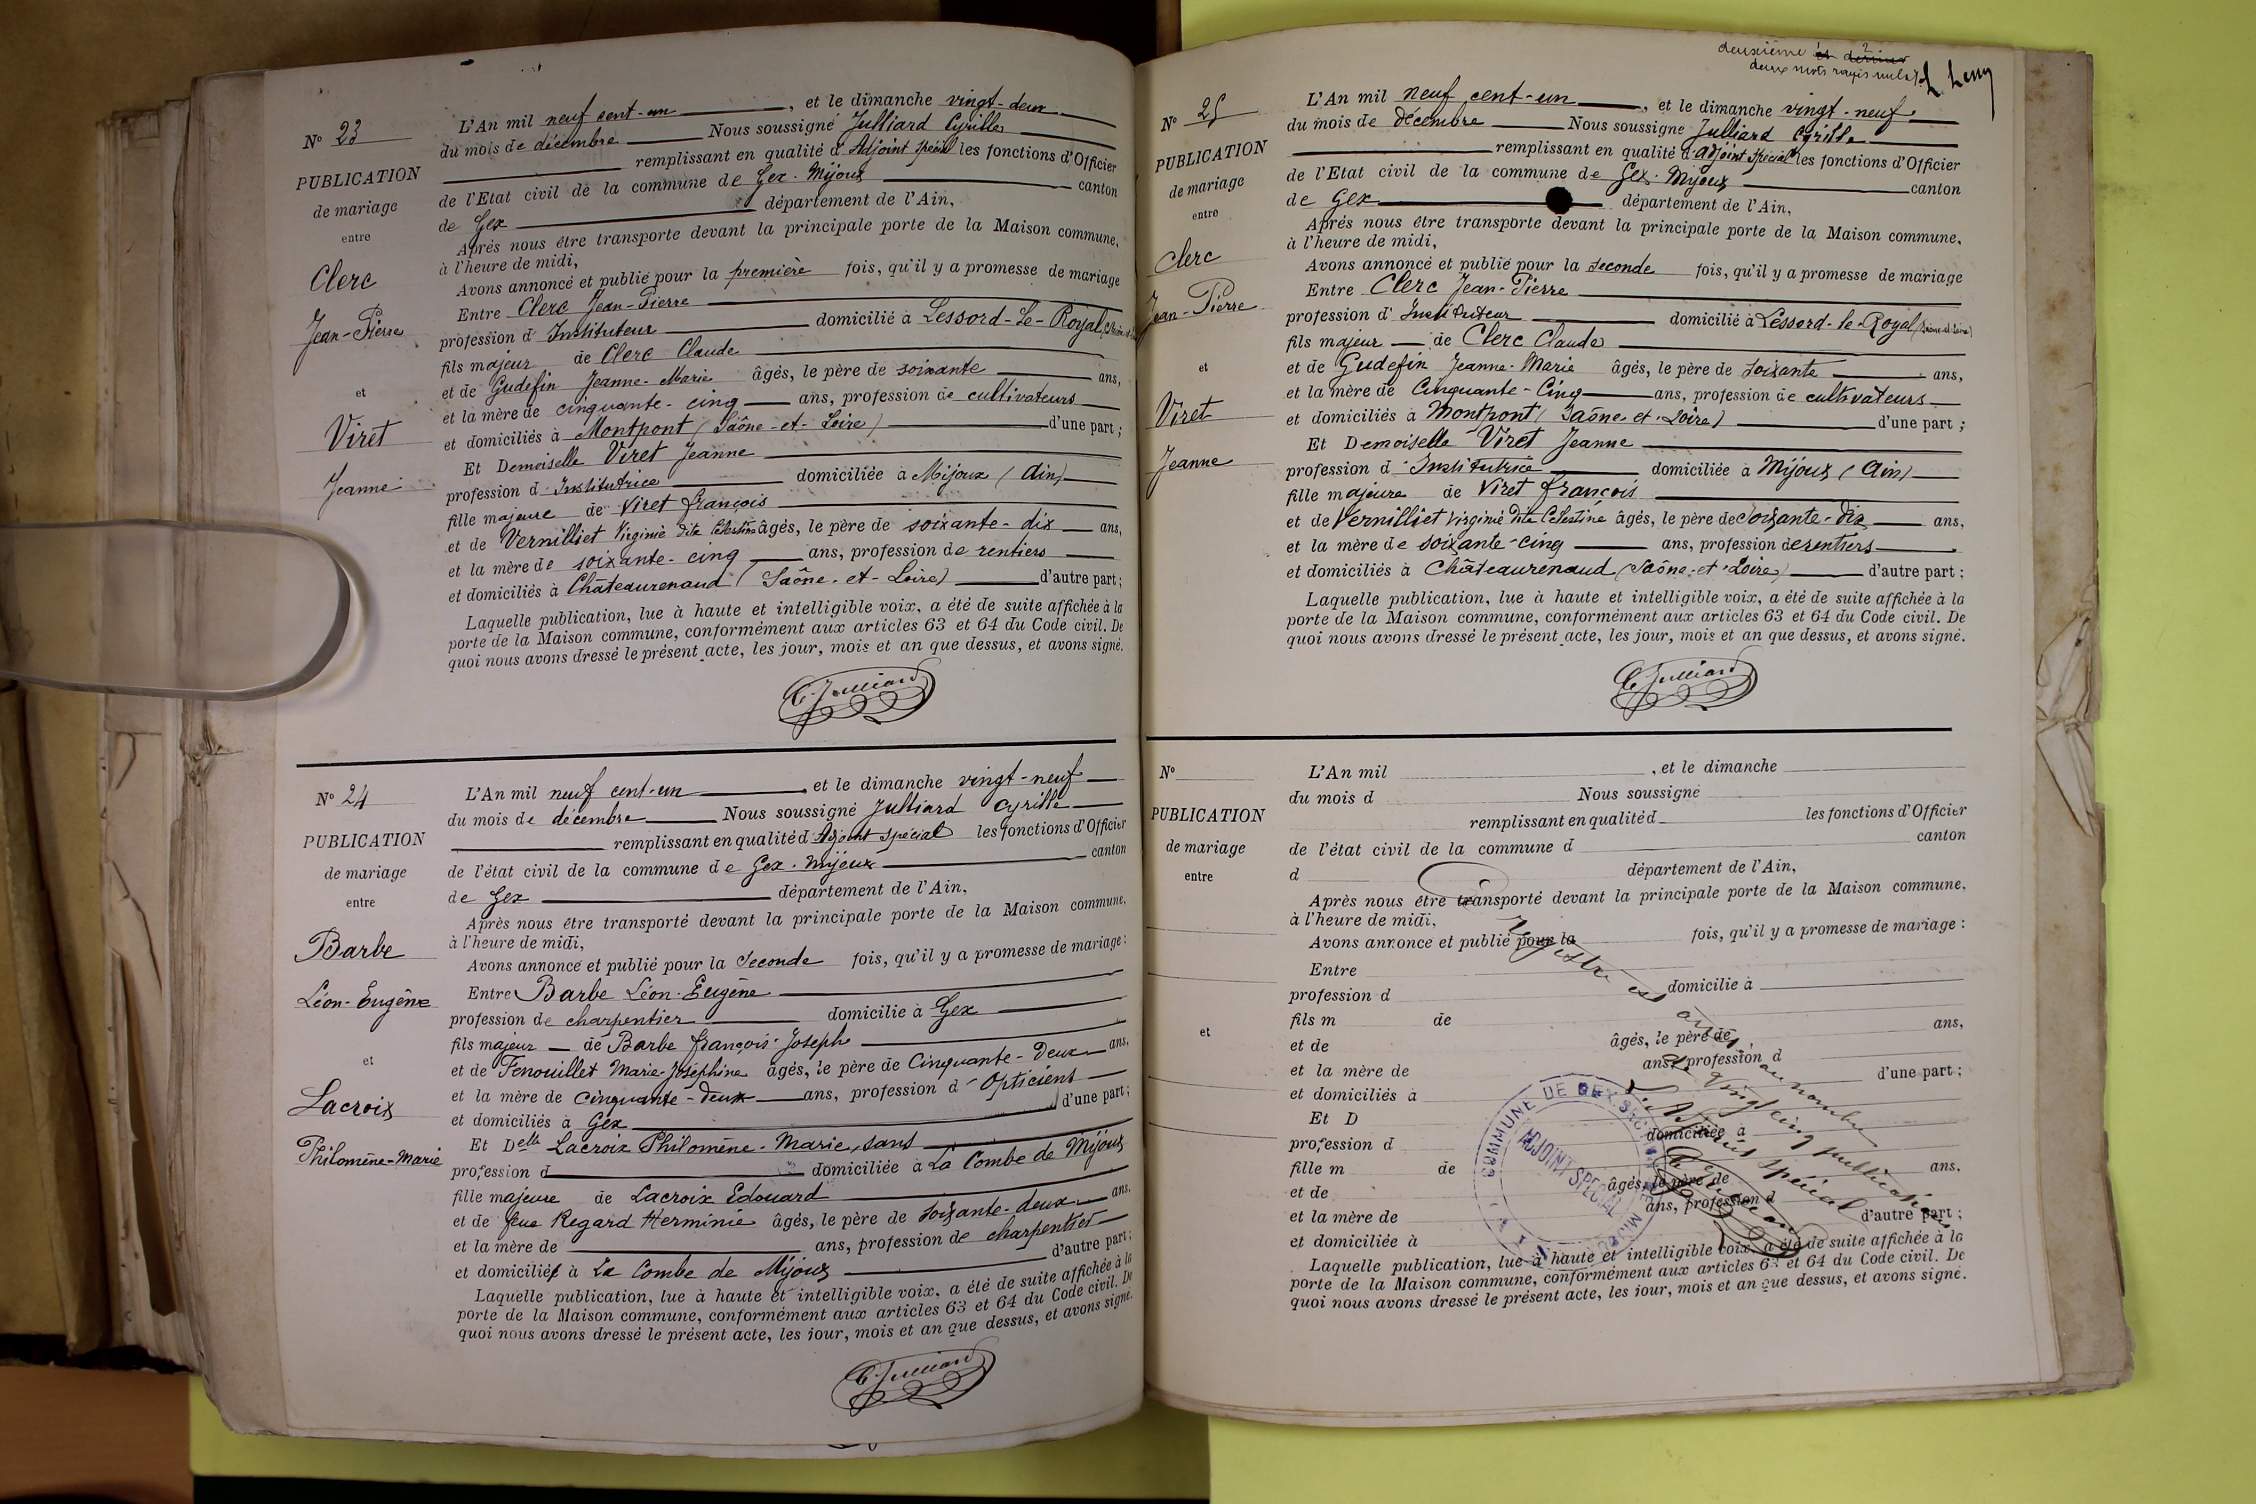 N° 23
PUBLICATION
de mariage
entre
Clerc
Jean-Pierre
et
Viret
Jeanne
L'An mil neuf cent-un, et le dimanche vingt-deux
du mois de décembre Nous soussigné Julliard Cyrille
remplissant en qualité d'Adjoint spécial les fonctions d'Officier
de l'Etat civil de la commune de Gex-Mijoux canton
de Gex département de l'Ain,
Après nous être transporté devant la principale porte de la Maison commune,
à l'heure de midi,
Avons annoncé et publié pour la première fois, qu'il y a promesse de mariage
Entre Clerc Jean-Pierre
profession d'Instituteur domicilié à Lessord-le-Royal
fils majeur de Clerc Claude
et de Gudefin Jeanne-Marie âgés, le père de soixante ans,
et la mère de cinquante-cinq ans, profession de cultivateurs
et domiciliés à Montpont (Saône-et-Loire) d'une part ;
Et Demoiselle Viret Jeanne
profession d'Institutrice domiciliée à Mijoux (Ain)
fille majeure de Viret françois
et de Vernilliet Virginie dite Célestine âgés, le père de soixante-dix ans,
et la mère de soixante-cinq ans, profession de rentiers
et domiciliés à Châteaurenaud (Saône-et-Loire) d'autre part ;
Laquelle publication, lue à haute et intelligible voix, a été de suite affichée à la
porte de la Maison commune, conformément aux articles 63 et 64 du Code civil. De
quoi nous avons dressé le présent acte, les jour, mois et an que dessus, et avons signé.
C. Julliard
N° 24
PUBLICATION
de mariage
entre
Barbe
Léon-Eugène
et
Lacroix
Philomène-Marie
L'An mil neuf cent-un, et le dimanche vingt-neuf
du mois de décembre Nous soussigné Julliard Cyrille
remplissant en qualité d'Adjoint spécial les fonctions d'Officier
de l'état civil de la commune de Gex-Mijoux canton
de Gex département de l'Ain,
Après nous être transporté devant la principale porte de la Maison commune,
à l'heure de midi,
Avons annoncé et publié pour la seconde fois, qu'il y a promesse de mariage :
Entre Barbe Léon-Eugène
profession de charpentier domicilié à Gex
fils majeur de Barbe françois-Joseph
et de Fenouillet Marie-Joséphine âgés, le père de Cinquante-Deux ans,
et la mère de cinquante-deux ans, profession d'Opticiens
et domiciliés à Gex d'une part ;
Et Delle Lacroix Philomène-Marie, sans
profession d domiciliée à La Combe de Mijoux
fille majeure de Lacroix Edouard
et de feue Regard Herminie âgés, le père de soixante-deux ans,
et la mère de ans, profession de charpentier
et domicilié à La Combe de Mijoux d'autre part ;
Laquelle publication, lue à haute et intelligible voix, a été de suite affichée à la
porte de la Maison commune, conformément aux articles 63 et 64 du Code civil. De
quoi nous avons dressé le présent acte, les jour, mois et an que dessus, et avons signé.
C. Julliard
deuxième et dernier
deux mots rayés nuls
N° 25
PUBLICATION
de mariage
entre
Clerc
Jean-Pierre
et
Viret
Jeanne
L'An mil neuf cent-un, et le dimanche vingt-neuf
du mois de décembre Nous soussigné Julliard Cyrille
remplissant en qualité d'adjoint spécial les fonctions d'Officier
de l'Etat civil de la commune de Gex-Mijoux canton
de Gex département de l'Ain,
Après nous être transporté devant la principale porte de la Maison commune,
à l'heure de midi,
Avons annoncé et publié pour la seconde fois, qu'il y a promesse de mariage
Entre Clerc Jean-Pierre
profession d'Instituteur domicilié à Lessord-le-Royal (Saône-et-Loire)
fils majeur de Clerc Claude
et de Gudefin Jeanne-Marie âgés, le père de soixante ans,
et la mère de Cinquante-Cinq ans, profession de cultivateurs
et domiciliés à Montpont (Saône-et-Loire) d'une part ;
Et Demoiselle Viret Jeanne
profession d'Institutrice domiciliée à Mijoux (Ain)
fille majeure de Viret françois
et de Vernilliet Virginie dite Célestine âgés, le père de soixante-dix ans,
et la mère de soixante-cinq ans, profession de rentiers
et domiciliés à Châteaurenaud (Saône-et-Loire) d'autre part ;
Laquelle publication, lue à haute et intelligible voix, a été de suite affichée à la
porte de la Maison commune, conformément aux articles 63 et 64 du Code civil. De
quoi nous avons dressé le présent acte, les jour, mois et an que dessus, et avons signé.
C. Julliard
N°
PUBLICATION
de mariage
entre
et
L'An mil , et le dimanche
du mois d Nous soussigné
remplissant en qualité d les fonctions d'Officier
de l'état civil de la commune d canton
d département de l'Ain,
Après nous être transporté devant la principale porte de la Maison commune,
à l'heure de midi,
Avons annoncé et publié pour la fois, qu'il y a promesse de mariage :
Entre
profession d domicilié à
fils m de
et de âgés, le père de ans,
et la mère de ans, profession d
et domiciliés à d'une part ;
Et D
profession d domiciliée à
fille m de
et de âgés, le père de ans,
et la mère de ans, profession d
et domiciliés à d'autre part ;
Laquelle publication, lue à haute et intelligible voix, a été de suite affichée à la
porte de la Maison commune, conformément aux articles 63 et 64 du Code civil. De
quoi nous avons dressé le présent acte, les jour, mois et an que dessus, et avons signé.
registre est
au nombre
de vingt cinq publications
L'Adjoint spécial
C. Julliard
COMMUNE DE GEX
ADJOINT SPÉCIAL